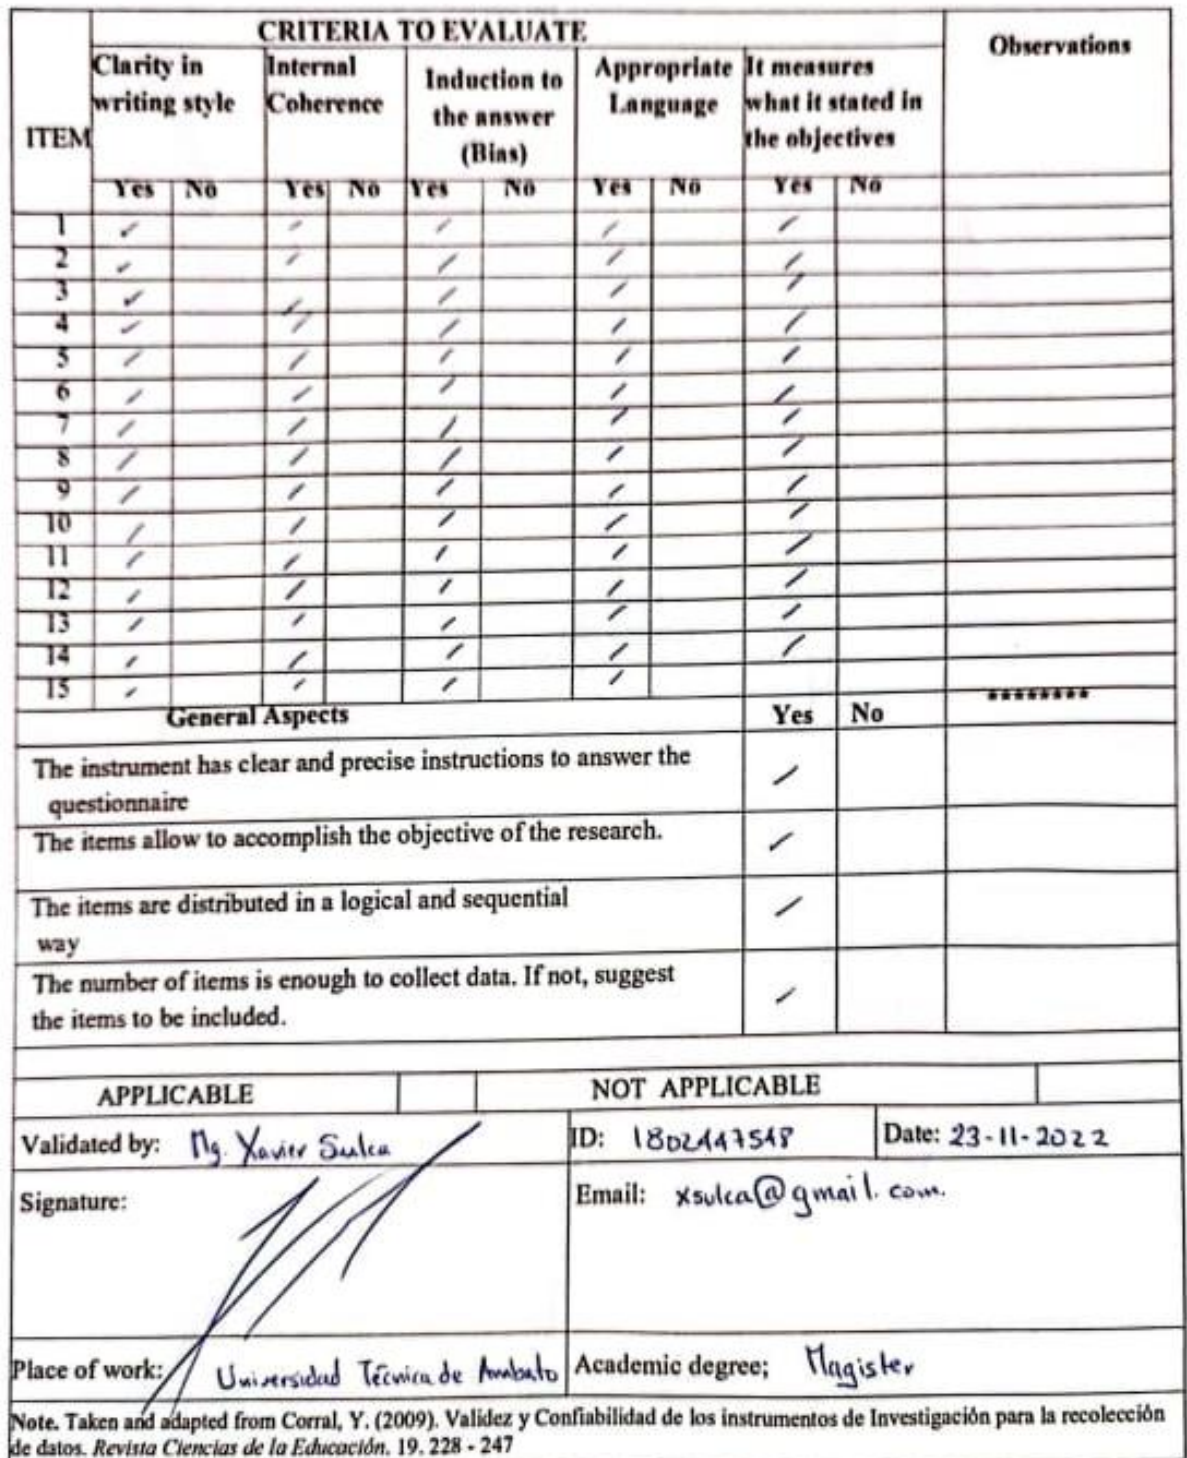 CRITERIA TO EVALUATE
Observations
ITEM
Clarity in
writing style
Internal
Coherence
Induction to
the answer
(Bias)
Appropriate
Language
It measures
what it stated in
the objectives
Yes No Yes No Yes No Yes No Yes No
1 ✓ / / / /
2 ✓ / / / /
3 ✓ / / / /
4 ✓ / / / /
5 / / / / /
6 / / / / /
7 / / / / /
8 / / / / /
9 / / / / /
10 / / / / /
11 / / / / /
12 / / / / /
13 / / / / /
14 / / / / /
15 / / / /
********
General Aspects Yes No
The instrument has clear and precise instructions to answer the /
questionnaire
The items allow to accomplish the objective of the research. ✓
The items are distributed in a logical and sequential /
way
The number of items is enough to collect data. If not, suggest /
the items to be included.
APPLICABLE NOT APPLICABLE
Validated by: Mg. Xavier Sulca ID: 1802447548 Date: 23-11-2022
Signature: Email: xsulca@gmail.com.
Place of work: Universidad Técnica de Ambato Academic degree; Magister
Note. Taken and adapted from Corral, Y. (2009). Validez y Confiabilidad de los instrumentos de Investigación para la recolección
de datos. Revista Ciencias de la Educación, 19, 228 - 247